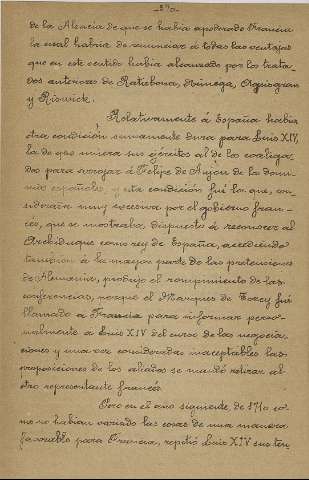 de la Alsacia de que se habia apoderado Francia
la cual habria de renunciar á todas las ventajas
que en este sentido habia alcanzado por los trata-
dos anteriores de Ratisbona, Nimega, Aquisgran
y Riswick.
Relativamente á España habia
otra condición sumamente dura para Luis XIV,
la de que uniera sus ejércitos al de los coaliga-
dos para arrojar á Felipe de Anjou de los domi-
nios españoles, y esta condición fué la que, con-
siderada muy excesiva por el gobierno fran-
cés, que se mostraba dispuesto á reconocer al
Archiduque como rey de España, accediendo
tambien á la mayor parte de las pretensiones
de Alemania, produjo el rompimiento de las
conferencias, porque el Marques de Torcy fué
llamado á Francia para informar perso-
nalmente á Luis XIV del curso de las negocia-
ciones y una vez consideradas inaceptables las
proposiciones de los aliados se mandó retirar al
otro representante francés.
Pero en el año siguiente de 1710 co-
mo no habian variado las cosas de una manera
favorable para Francia, repitió Luis XIV sus ten-